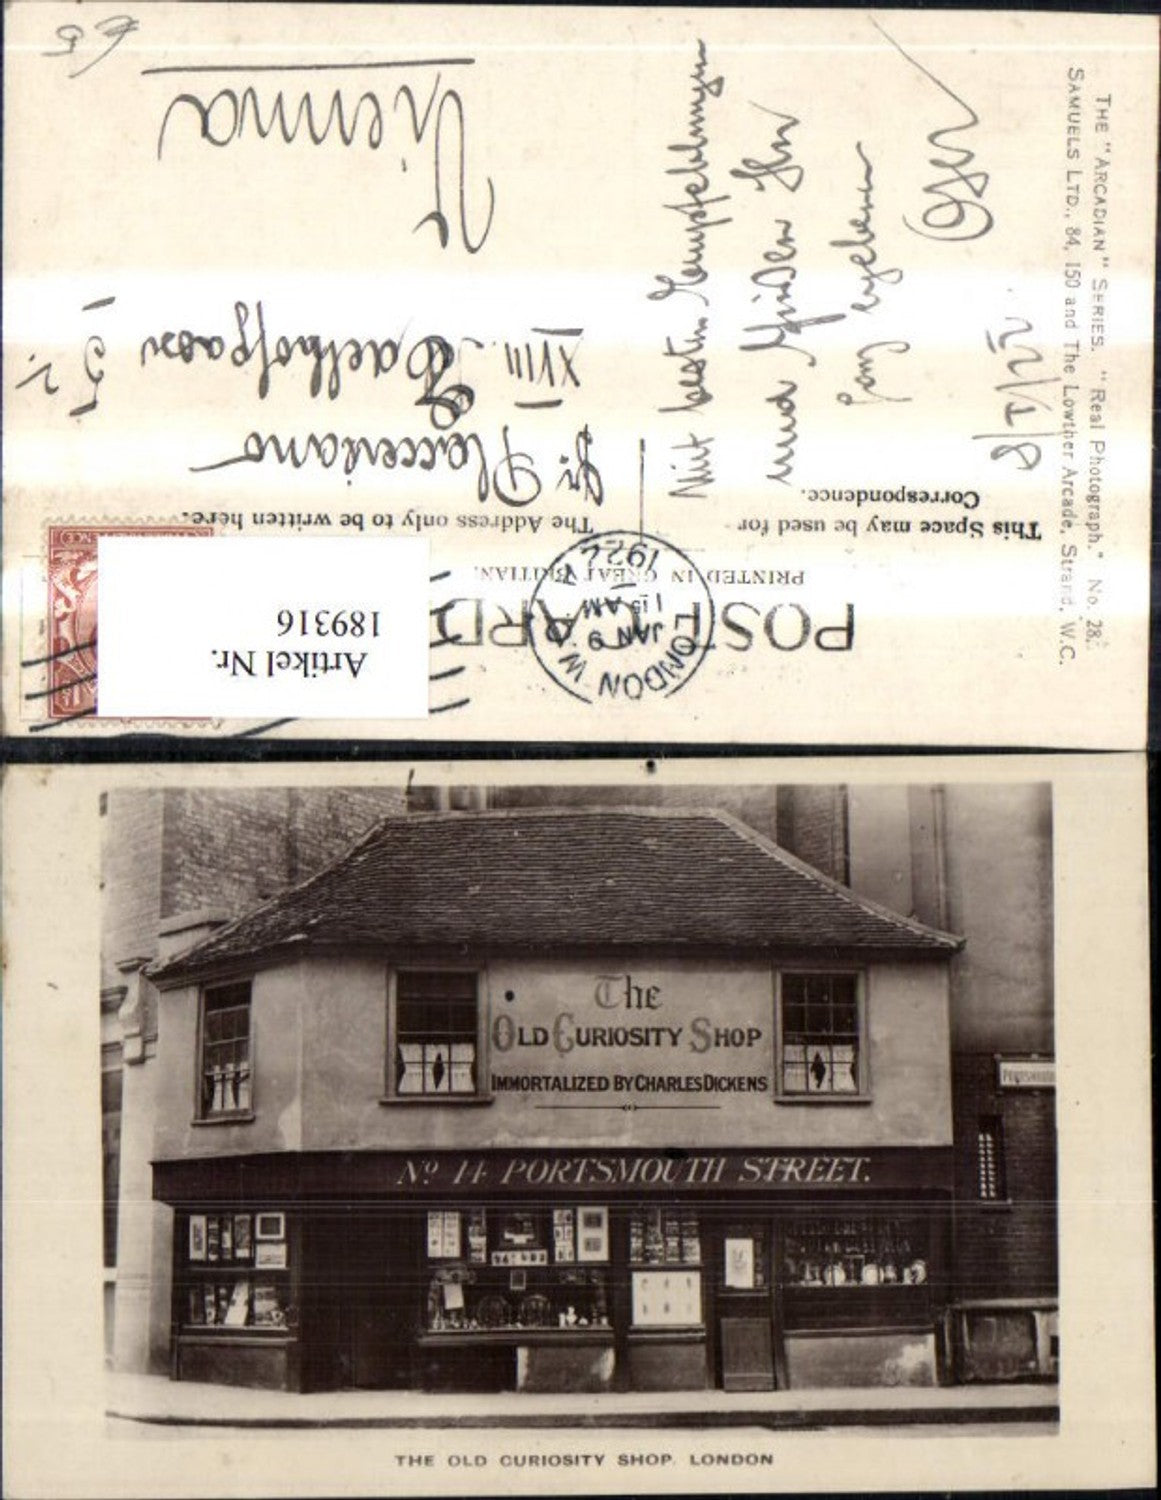 THE "ARCADIAN" SERIES. "Real Photograph." No. 28.
SAMUELS LTD., 84, 150 and The Lowther Arcade, Strand, W.C.
POST CARD
PRINTED IN GREAT BRITIAN.
This Space may be used for
Correspondence.
The Address only to be written here.
LONDON W.C.
JAN 9
1 15 AM
1922
Artikel Nr.
189316
8/I/22.
Mit besten Empfehlungen
und
ganz ergebener
Dr.
XVIII.
52.
Vienna
The
OLD CURIOSITY SHOP
IMMORTALIZED BY CHARLES DICKENS
No 14 PORTSMOUTH STREET.
PORTSMOU
THE OLD CURIOSITY SHOP. LONDON